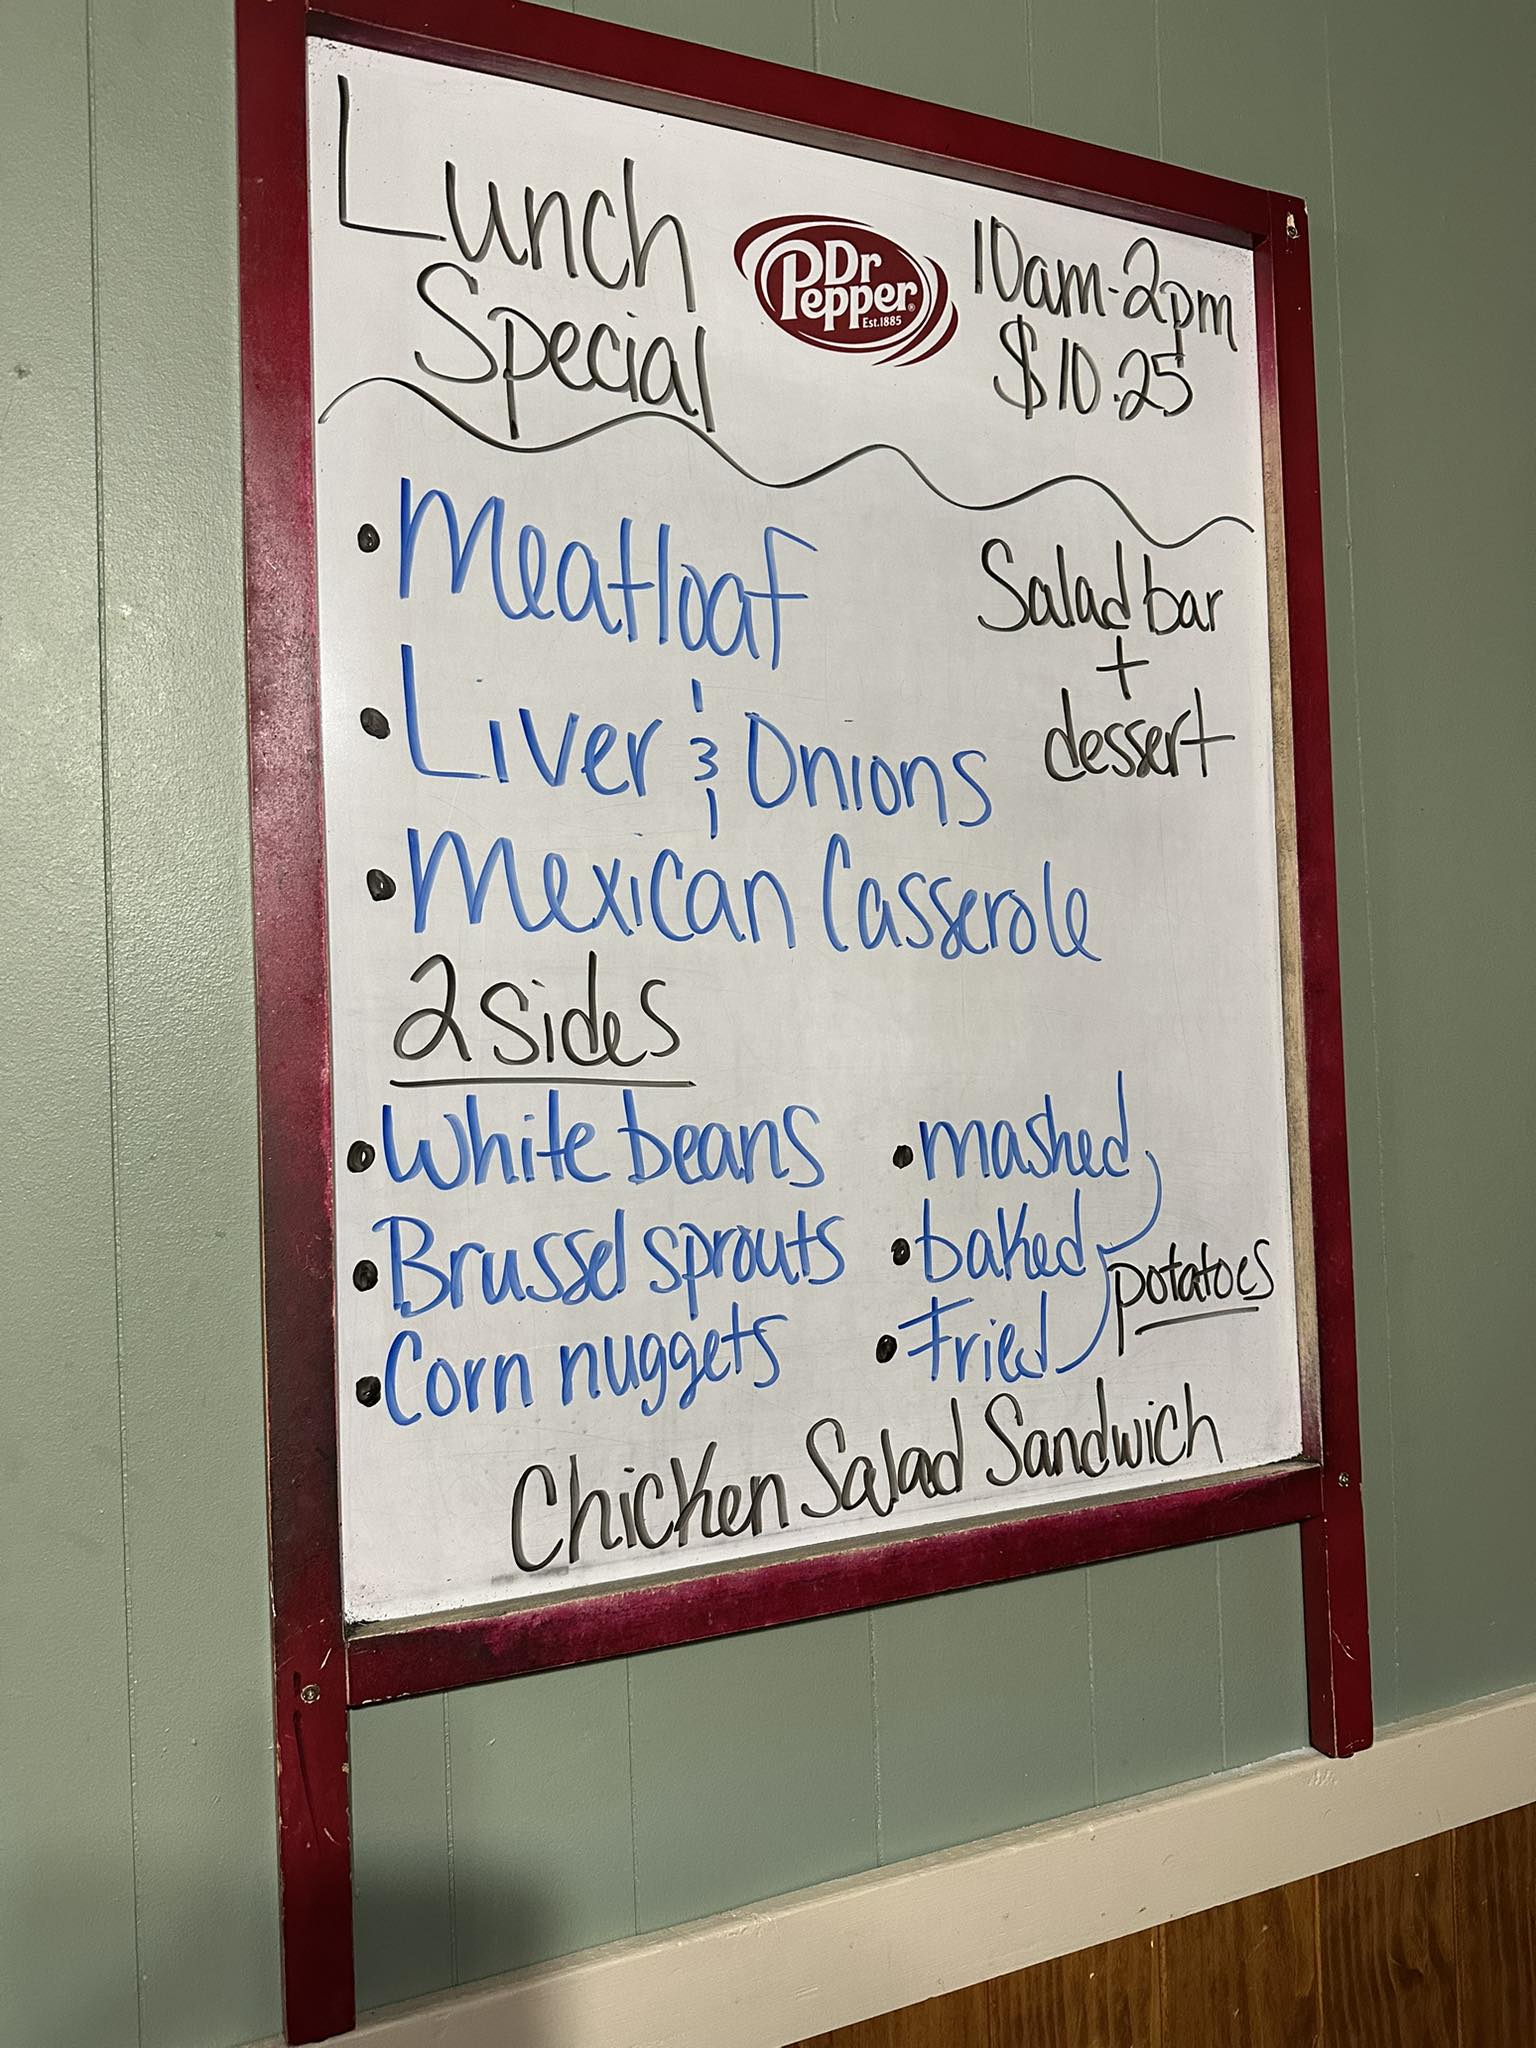 Lunch
Special
Dr
Pepper
Est.1885
10am-2pm
$10.25
• Meatloaf
• Liver & Onions
• Mexican Casserole
Salad bar
+
dessert
2 sides
• White beans
• Brussel sprouts
• Corn nuggets
• mashed
• baked
• Fried
potatoes
Chicken Salad Sandwich